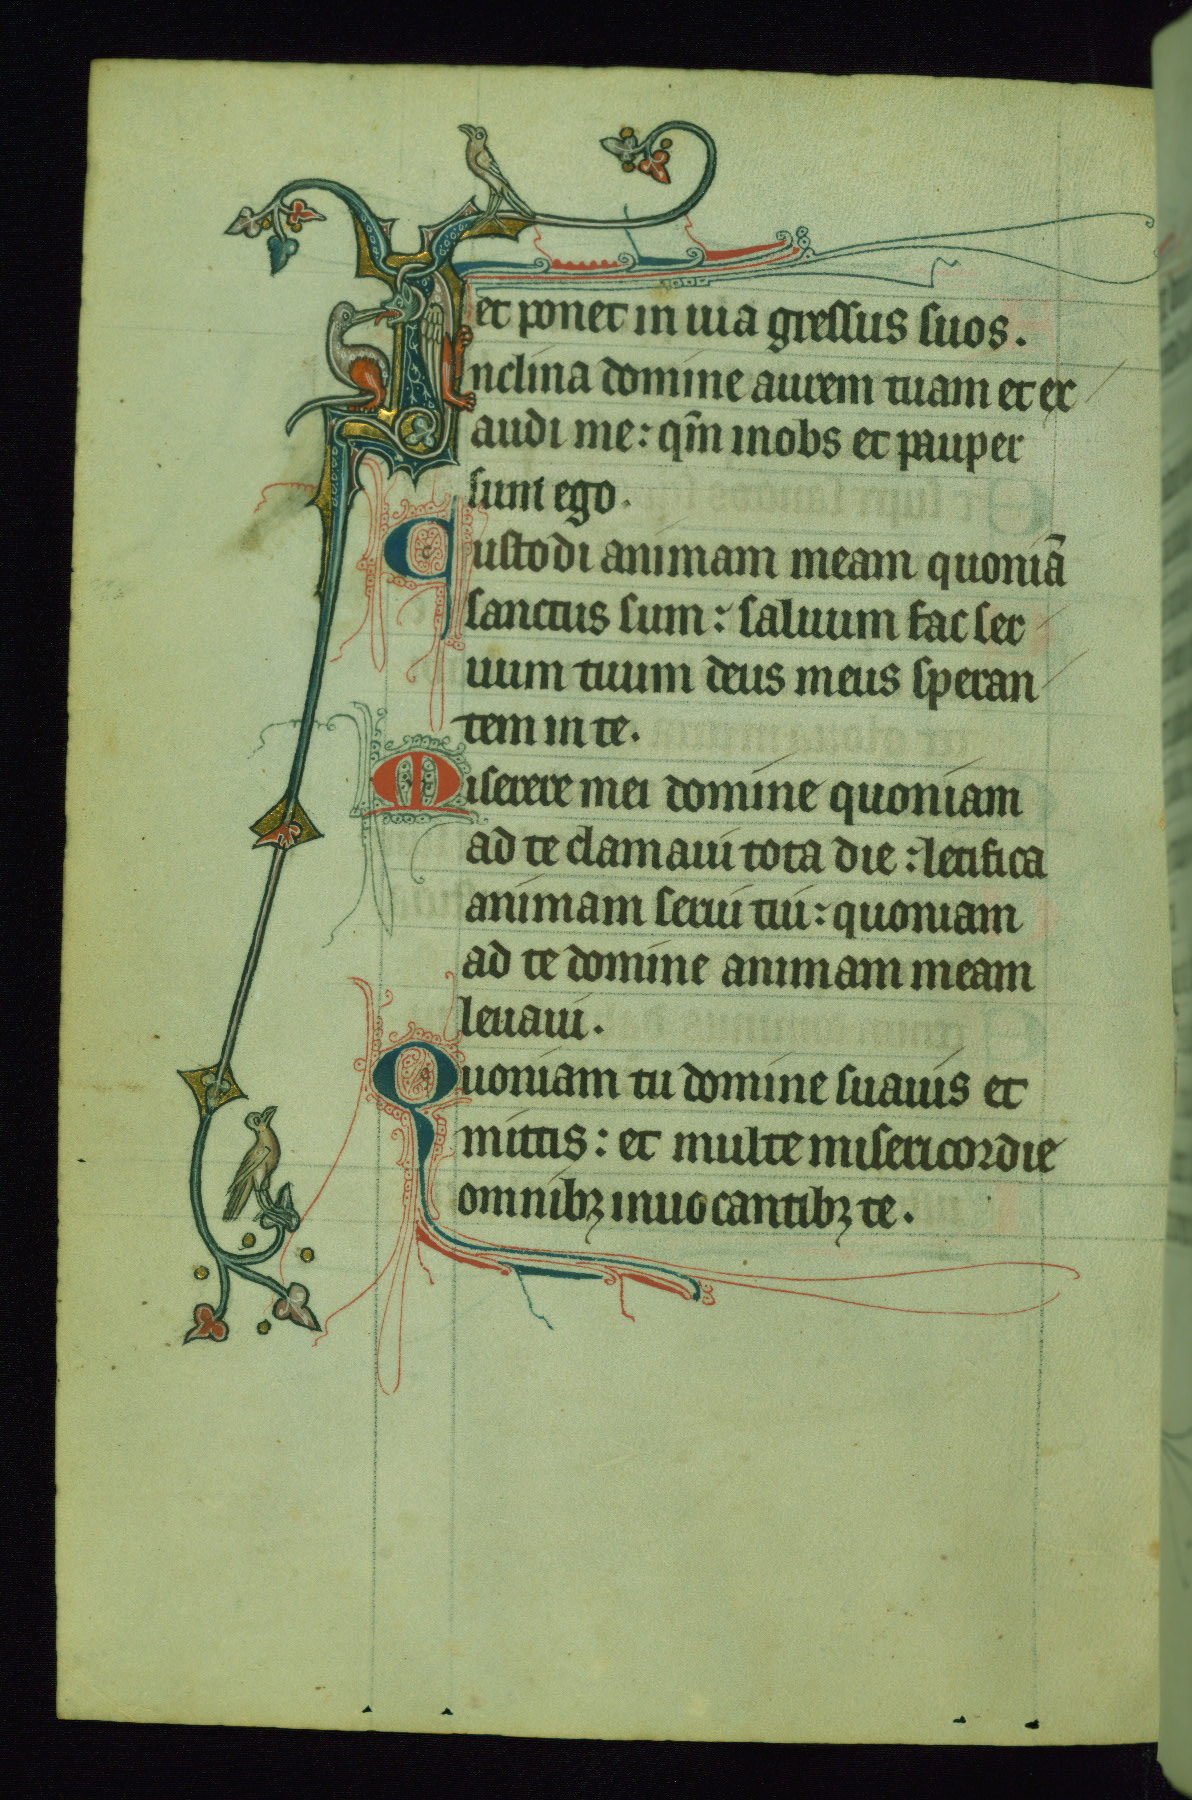 et ponet in uia gressus suos.
Inclina domine aurem tuam et ex
audi me: qm̄ inobs et pauper
sum ego.
Custodi animam meam quoniā
sanctus sum: saluum fac ser
uum tuum deus meus speran
tem in te.
Miserere mei domine quoniam
ad te clamaui tota die: letifica
animam serui tui: quoniam
ad te domine animam meam
leuaui.
Quoniam tu domine suauis et
mittis: et multe misericordie
omnibꝫ inuocantibꝫ te.